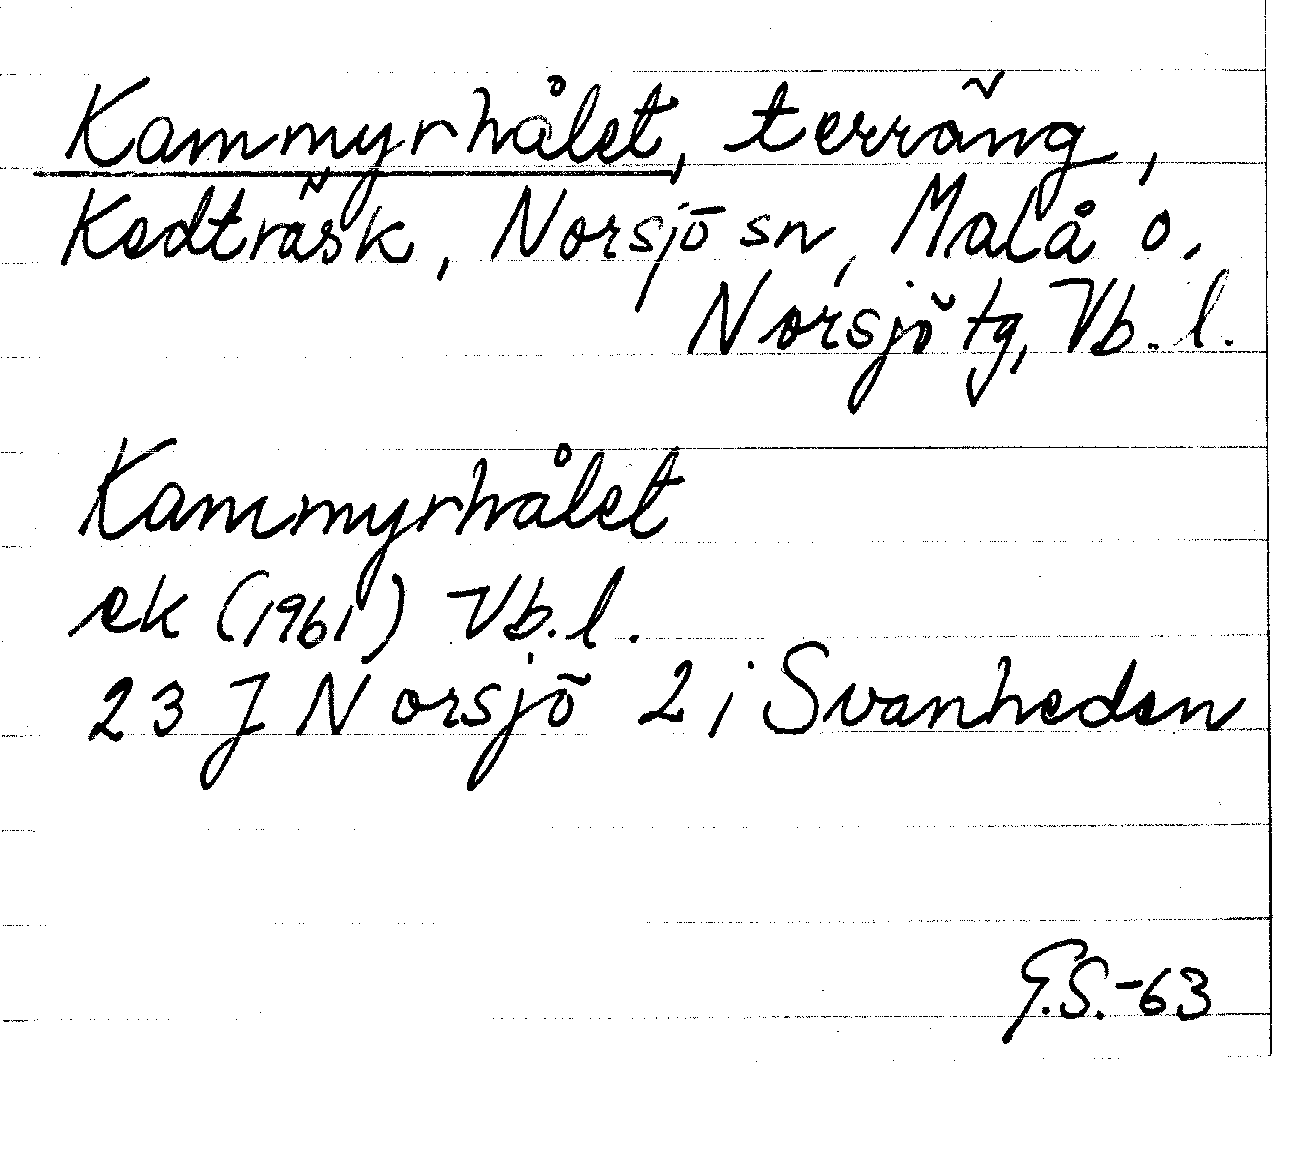 Kammyrhålet, terräng,
Kedträsk, Norsjö sn, Malå o.
Norsjö tg, Vb. l.
Kammyrhålet
ek (1961) Vb. l.
23 J Norsjö 2 i Svanheden
G.S.-63